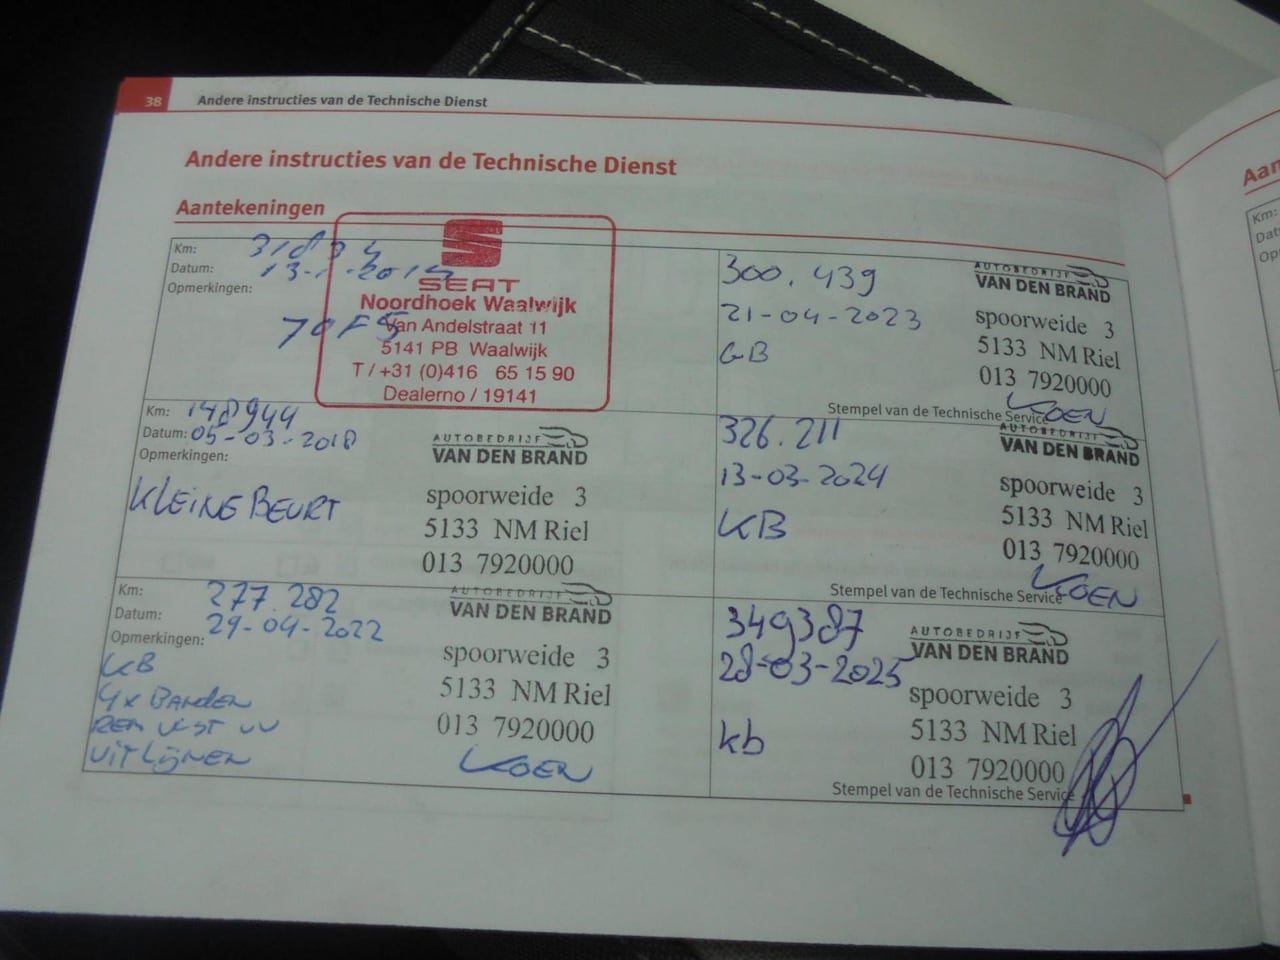 38 Andere instructies van de Technische Dienst
Andere instructies van de Technische Dienst
Aantekeningen
Km: 31834
Datum:
Opmerkingen:
70F5
SEAT
Noordhoek Waalwijk
Van Andelstraat 11
5141 PB Waalwijk
T / +31 (0)416 65 15 90
Dealerno / 19141
Km: 148944
Datum: 05-03-2018
Opmerkingen:
KLEINE BEURT
AUTOBEDRIJF
VAN DEN BRAND
spoorweide 3
5133 NM Riel
013 7920000
Km: 277.282
Datum: 29-04-2022
Opmerkingen:
KB
4x BANDEN
UITLIJNEN
AUTOBEDRIJF
VAN DEN BRAND
spoorweide 3
5133 NM Riel
013 7920000
KOEN
300.439
21-04-2023
GB
AUTOBEDRIJF
VAN DEN BRAND
spoorweide 3
5133 NM Riel
013 7920000
Stempel van de Technische Service
KOEN
326.211
13-03-2024
KB
AUTOBEDRIJF
VAN DEN BRAND
spoorweide 3
5133 NM Riel
013 7920000
Stempel van de Technische Service
KOEN
349387
28-03-2025
kb
AUTOBEDRIJF
VAN DEN BRAND
spoorweide 3
5133 NM Riel
013 7920000
Stempel van de Technische Service
Km: